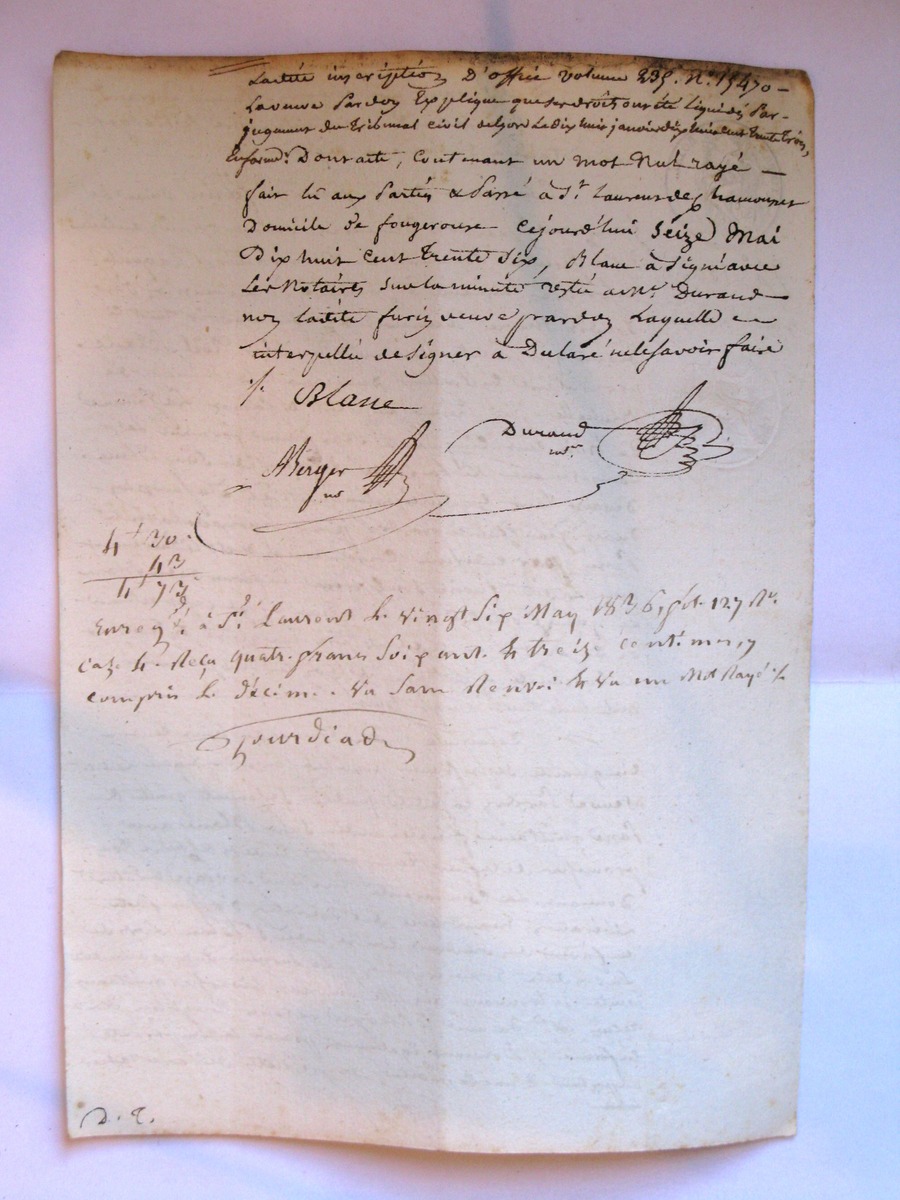 Ladite inscription D'office volume 235. N° 15470 —
La veuve Pardon Explique que ses droits ont été liquidés Par
jugement du Tribunal civil de Lyon Le dix huit janvier dix huit cent trente trois,
Dont acte, Contenant un mot Nul rayé —
fait lû aux Parties & Passé à St. Laurent de Chamousset
Domicile de fougerouse Cejourd'hui Seize Mai
Dix huit Cent Trente Six, Blanc à Signé avec
Les Notaires sur la minute restée a Me. Durand
non ladite veuve pardon Laquelle
interpellée de signer à Déclaré ne le Savoir faire
Blanc
Durand
nre.
Berger
nre
4f 30.
43
4f 73
Enregé. à St. Laurent le vingt Six May 1836, fol. 127 Ro.
Case 4. Reçu quatre francs Soixante & treize centimes, y
compris le décime. Vu Sans Renvoi & Vu un Mot Rayé ./.
D. E.